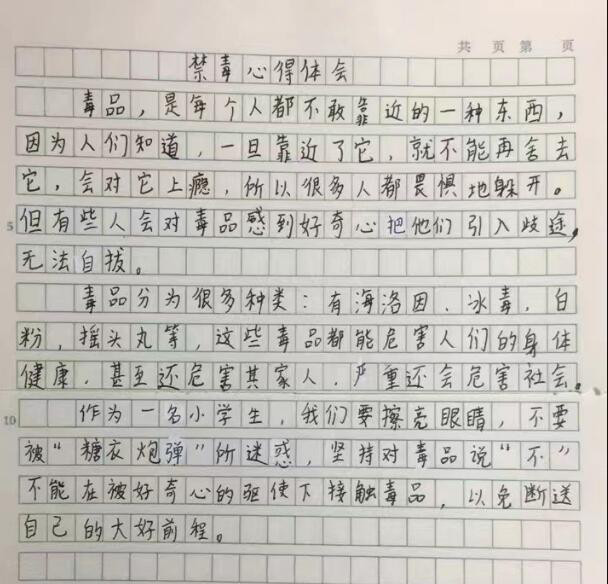 共 页 第 页
禁毒心得体会
毒品，是每个人都不敢靠近的一种东西，
因为人们知道，一旦靠近了它，就不能再舍去
它，会对它上瘾，所以很多人都畏惧地躲开。
5 但有些人会对毒品感到好奇心把他们引入歧途，
无法自拔。
毒品分为很多种类：有海洛因、冰毒，白
粉，摇头丸等，这些毒品都能危害人们的身体
健康，甚至还危害其家人，严重还会危害社会。
10 作为一名小学生，我们要擦亮眼睛，不要
被“糖衣炮弹”所迷惑，坚持对毒品说“不”
不能在被好奇心的驱使下接触毒品，以免断送
自己的大好前程。